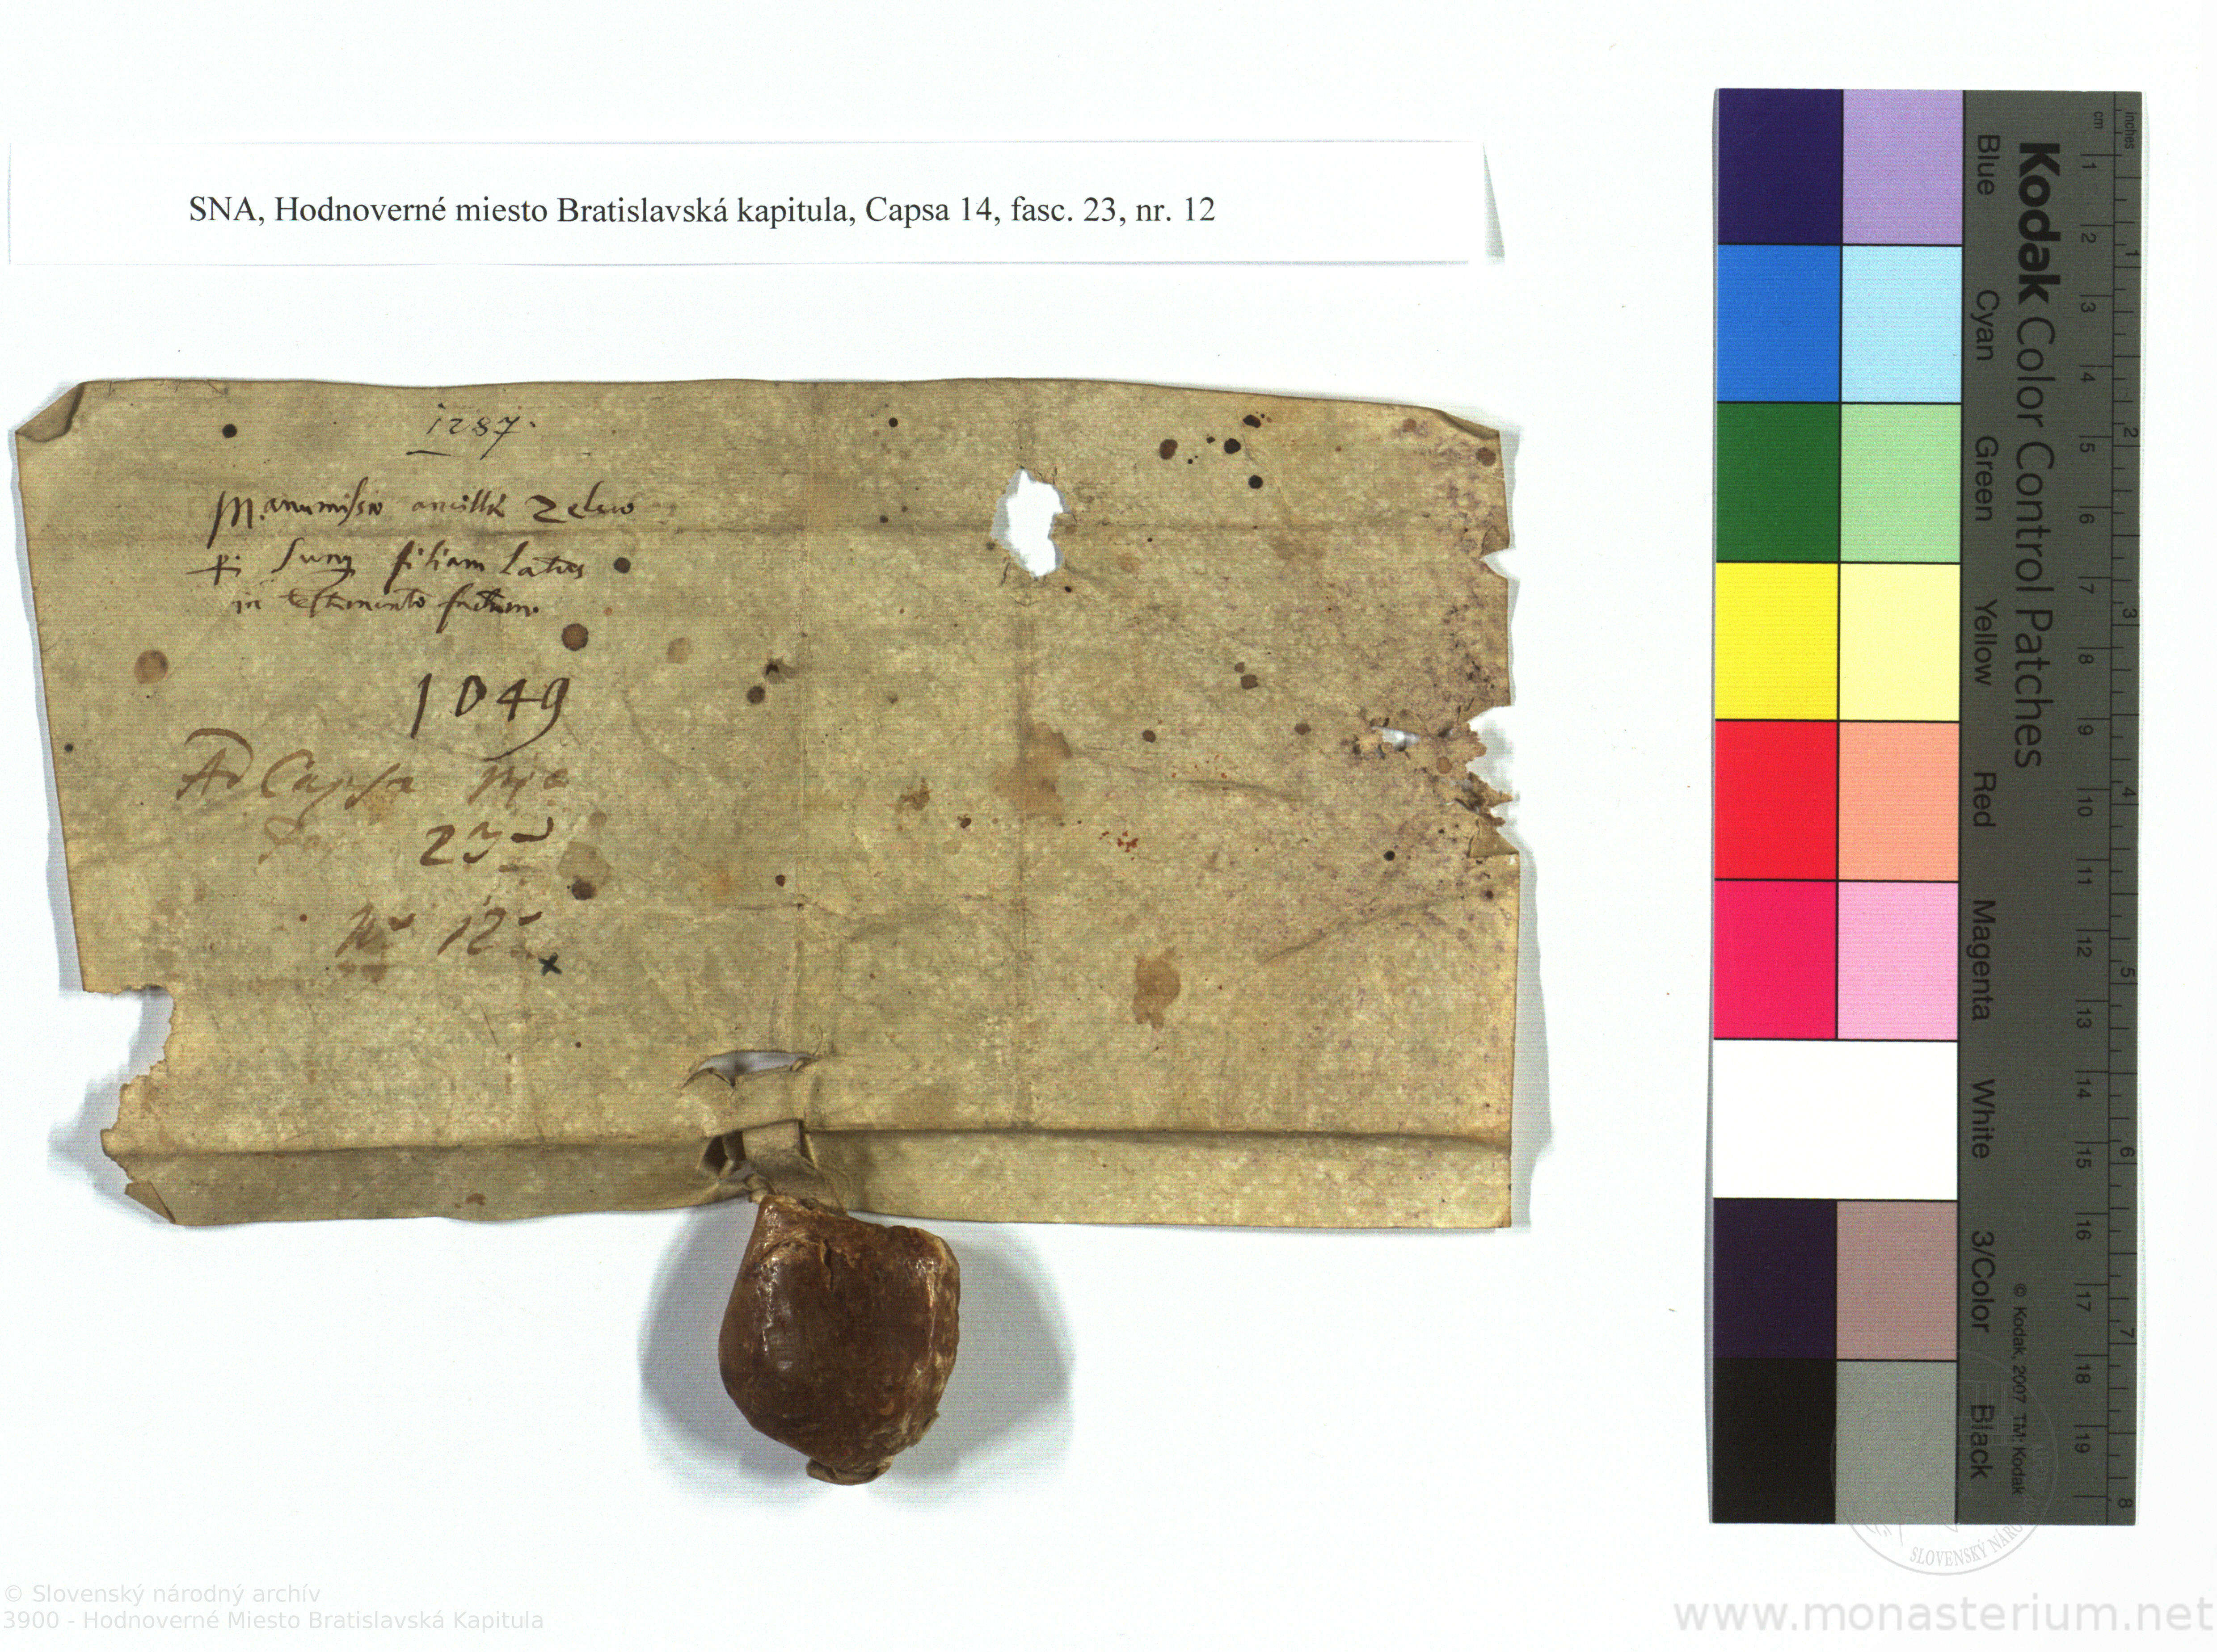 SNA, Hodnoverné miesto Bratislavská kapitula, Capsa 14, fasc. 23, nr. 12
1287.
Manumissio ancillæ
filiam
in testamento factam
1049
Ad Capsa
23
N° 12
x
Kodak Color Control Patches
Blue Cyan Green Yellow Red Magenta White 3/Color Black
© Kodak, 2007 TM: Kodak
cm 1 2 3 4 5 6 7 8 9 10 11 12 13 14 15 16 17 18 19
inches 1 2 3 4 5 6 7 8
SLOVENSKÝ NÁRO
© Slovenský národný archív
3900 - Hodnoverné Miesto Bratislavská Kapitula
www.monasterium.net